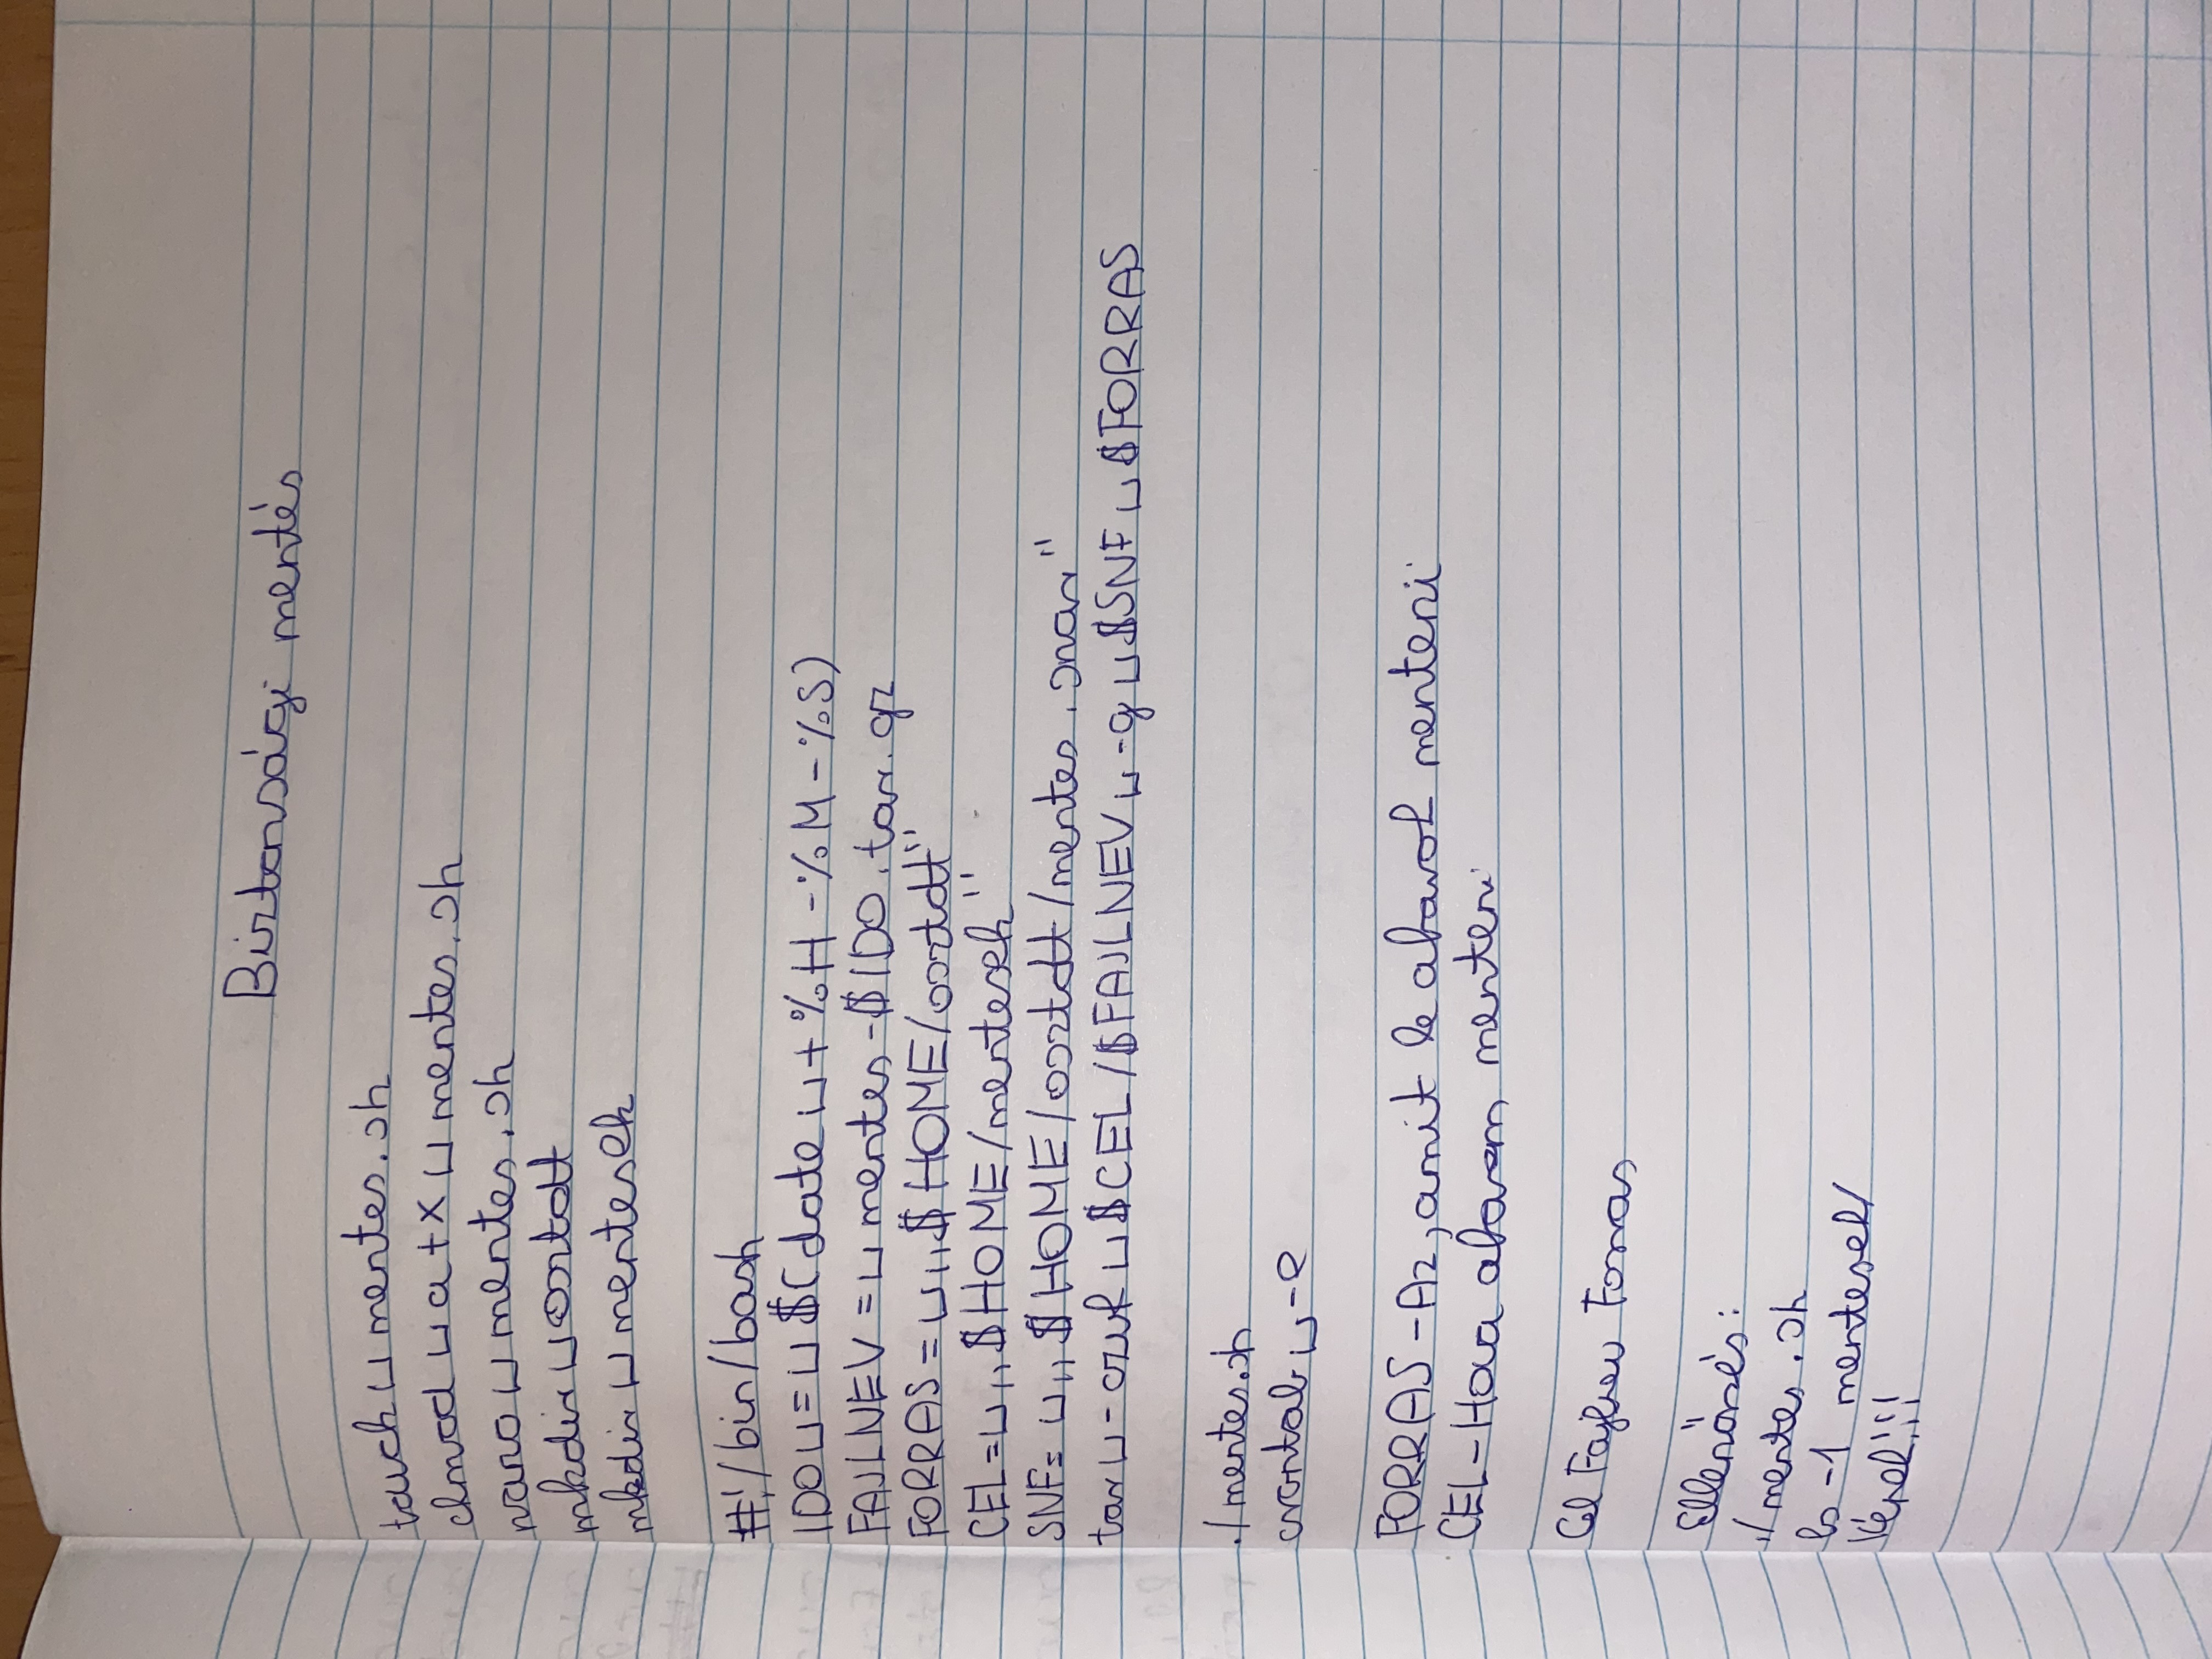 Biztonsági mentés
touch ⊔ mentes.sh
chmod ⊔ a+x ⊔ mentes.sh
nano ⊔ mentes.sh
mkdir ⊔ osztott
mkdir ⊔ mentesek
#!/bin/bash
IDO ⊔ = ⊔ $(date ⊔ +%H-%M-%S)
FAJLNEV = ⊔ mentes-$IDO.tar.gz
FORRAS = ⊔ „$HOME/osztott"
CEL= ⊔ „$HOME/mentesek"
SNF= ⊔ „$HOME/osztott/mentes.snar"
tar ⊔ -czvf ⊔ $CEL/$FAJLNEV ⊔ -g ⊔ $SNF ⊔ $FORRAS
./mentes.sh
crontab ⊔ -e
FORRAS-Az, amit le akarok menteni
CEL-Hova akarom menteni
Cel Fajlnev Forras
Ellenőrzés:
./mentes.sh
ls -1 mentesek/